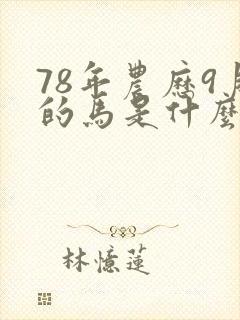 78年農歷9月
的馬是什麼
林憶蓮